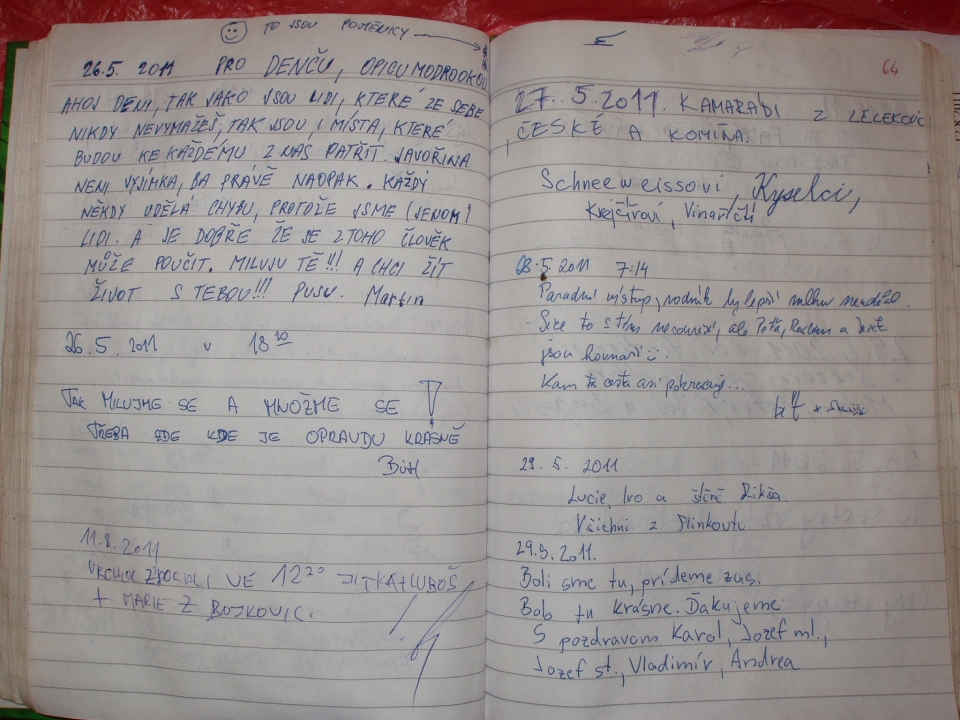 TO JSOU POMĚNKY
26.5. 2011 PRO DENČU, OPICU MODROOKOU
AHOJ DENI, TAK JAKO JSOU LIDI, KTERÉ ZE SEBE
NIKDY NEVYMAŽEŠ, TAK JSOU I MÍSTA, KTERÉ
BUDOU KE KAŽDÉMU Z NAS PATŘIT JAVOŘINA
NENI VYJÍMKA, BA PRÁVĚ NAOPAK. KAŽDÝ
NĚKDY UDĚLÁ CHYBU, PROTOŽE JSME (JENOM)
LIDI. A JE DOBŘE ŽE JE Z TOHO ČLOVĚK
MŮŽE POUČIT. MILUJU TĚ!!! A CHCI ŽÍT
ŽIVOT S TEBOU!!! PUSU. Martin
26.5. 2011 v 18 30
TAK MILUJME SE A MNOŽME SE !
TŘEBA ZDE KDE JE OPRAVDU KRÁSNĚ
BůH
11.8.2011
VRCHOL ZDOLALI VE 12 20 JITKA + LUBOŠ
+ MARIE Z BOJKOVIC.
64
27. 5. 2011. KAMARÁDI Z LELEKOVIC,
ČESKÉ A KOMÍNA.
Schneeweissovi, Kyselci,
Krejčířovi, Vinařičtí
28.5.2011 7:14
Paradní výstup, rodník by lepší mlhu
Sice to s tím nesouvisí, ale Peťa, a
jsou
Kam ta cesta asi pokračuje...
29. 5. 2011
Lucie, Ivo a štěně Rikša.
Všichni z Plinkoutu.
29.5.2011.
Boli sme tu, prídeme zas.
Bolo tu krásne. Ďakujeme
S pozdravom Karol, Jozef ml.,
Jozef st., Vladimír, Andrea